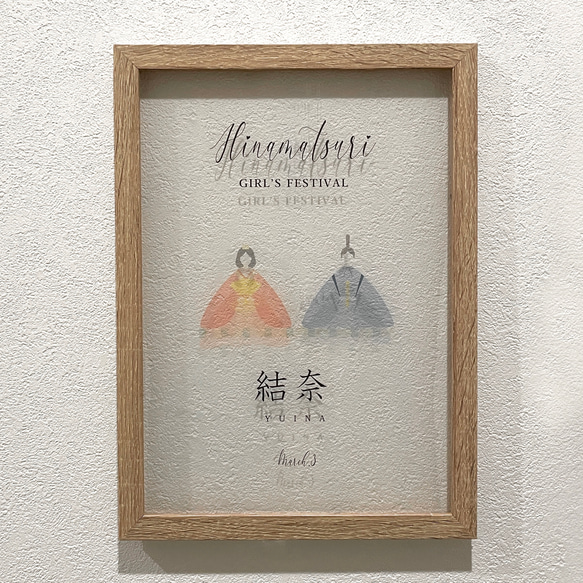 Hinamatsuri
GIRL'S FESTIVAL
結奈
YUINA
March.3